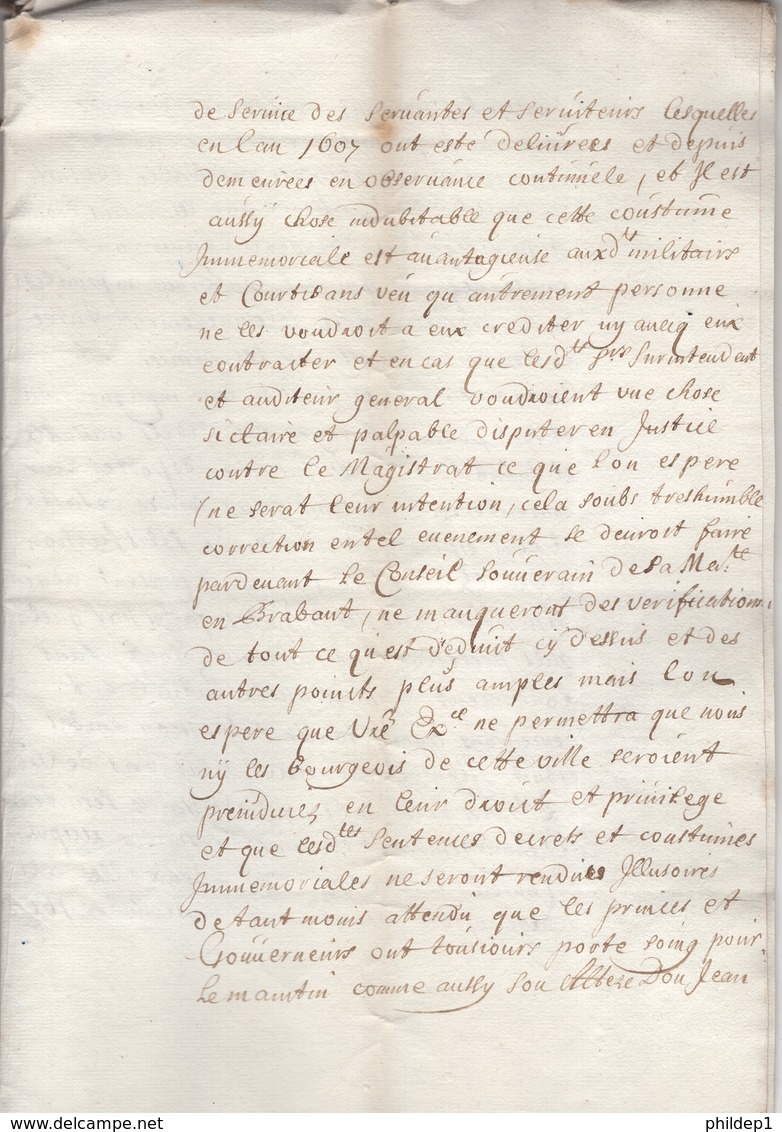 de service des servantes et serviteurs lesquelles
en l'an 1607 ont esté delivrees et depuis
demeurees en observance continuele, et Il est
aussy chose indubitable que cette coustume
Immemoriale est avantagieuse auxd.ts militairs
et Courtisans veu qu'autrement personne
ne les voudroit a eux crediter ny avecq eux
contracter et en cas que lesd.ts Srs Surintendent
et auditeur general voudroient une chose
si claire et palpable disputer en Justice
contre le Magistrat ce que l'on espere
(ne serat leur intention, cela soubs treshumble
correction en tel evenement se devroit faire
pardevant le Conseil souverain de sa Ma.té
en Brabant, ne manqueront des verifications
de tout ce qu'est deduit cy dessus et des
autres poincts plus amples mais l'on
espere que Vre Ex.ce ne permettra que nous
ny les bourgeois de cette ville seroient
preiudiciez en leur droict et privilege
et que lesd.tes Sentences decrets et coustumes
Immemoriales ne seront rendues Illusoires
de tant moins attendu que les princes et
Gouverneurs ont tousiours porté soing pour
le maintin comme aussy son Alteze Don Jean
phildep1